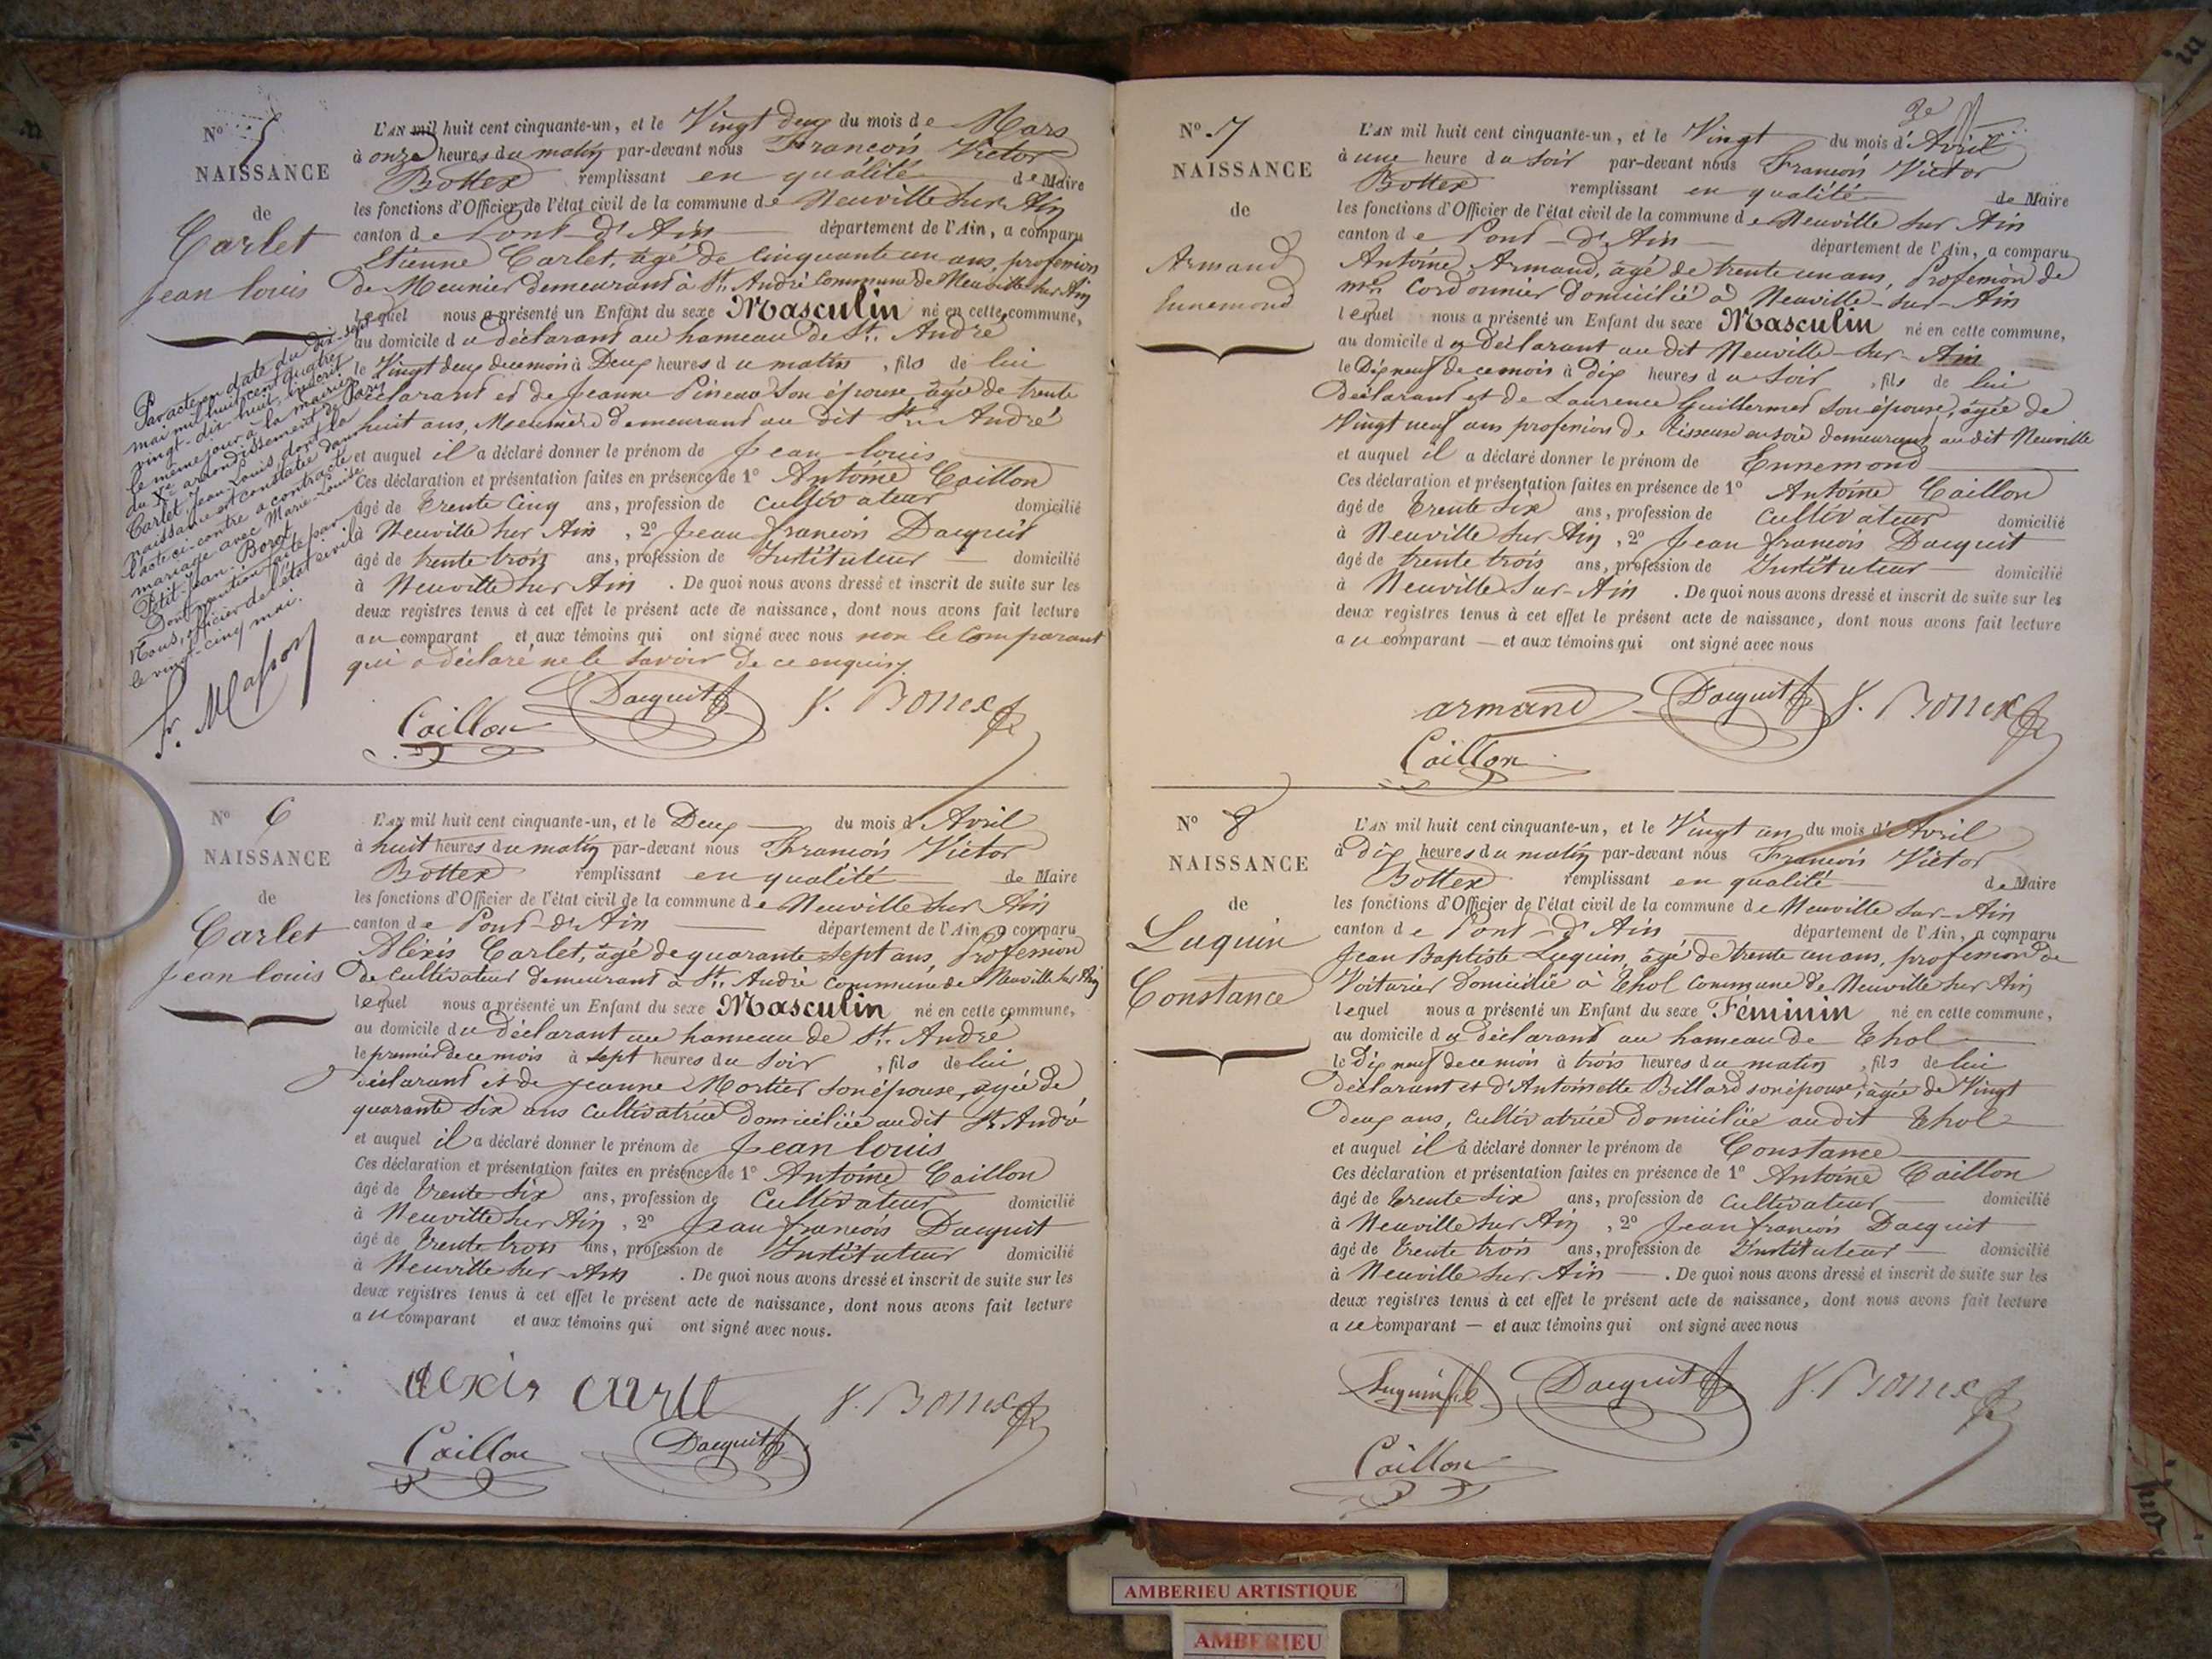 N° 5
NAISSANCE
de
Carlet
Jean Louis
L'AN mil huit cent cinquante-un, et le Vingt deux du mois de Mars
à onze heures du matin par-devant nous François Victor
Bottex remplissant en qualité de Maire
les fonctions d'Officier de l'état civil de la commune de Neuville sur Ain
canton de Pont-d'Ain département de l'Ain, a comparu
Etienne Carlet, âgé de cinquante un ans, profession
de Meunier demeurant à St. André commune de Neuville sur Ain
lequel nous a présenté un Enfant du sexe Masculin né en cette commune,
au domicile du déclarant au hameau de St. André
le Vingt deux du mois à Deux heures du matin, fils de lui
déclarant et de Jeanne Pineau son épouse, âgée de trente
huit ans, Meunière demeurant au dit St. André
et auquel il a déclaré donner le prénom de Jean Louis
Ces déclaration et présentation faites en présence de 1° Antoine Caillon
âgé de trente cinq ans, profession de cultivateur domicilié
à Neuville sur Ain, 2° Jean françois Dacquit
âgé de trente trois ans, profession de Instituteur domicilié
à Neuville sur Ain. De quoi nous avons dressé et inscrit de suite sur les
deux registres tenus à cet effet le présent acte de naissance, dont nous avons fait lecture
au comparant et aux témoins qui ont signé avec nous non le comparant
qui a déclaré ne le savoir de ce enquis.
Caillon Dacquit V. Bottex
Par acte en date du dix-sept
mai mil huit cent quatre
vingt-dix huit, inscrit
le même jour à la mairie
du Xe arrondissement de Paris
Carlet Jean Louis, dont la
naissance est constatée dans
l'acte ci-contre a contracté
mariage avec Marie Louise
Petit-Jean. Borot
Dont mention faite par
Nous, officier de l'état civil
le vingt-cinq mai.
fr. Masson
N° 6
NAISSANCE
de
Carlet
Jean Louis
L'AN mil huit cent cinquante-un, et le Deux du mois d'Avril
à huit heures du matin par-devant nous François Victor
Bottex remplissant en qualité de Maire
les fonctions d'Officier de l'état civil de la commune de Neuville sur Ain
canton de Pont-d'Ain département de l'Ain, a comparu
Aléxis Carlet, âgé de quarante sept ans, Profession
de cultivateur demeurant à St. André commune de Neuville sur Ain
lequel nous a présenté un Enfant du sexe Masculin né en cette commune,
au domicile du déclarant au hameau de St. André
le premier de ce mois à sept heures du soir, fils de lui
déclarant et de Jeanne Mortier son épouse, âgée de
quarante six ans cultivatrice domiciliée audit St. André
et auquel il a déclaré donner le prénom de Jean Louis
Ces déclaration et présentation faites en présence de 1° Antoine Caillon
âgé de trente six ans, profession de Cultivateur domicilié
à Neuville sur Ain, 2° Jean françois Dacquit
âgé de trente trois ans, profession de Instituteur domicilié
à Neuville sur Ain. De quoi nous avons dressé et inscrit de suite sur les
deux registres tenus à cet effet le présent acte de naissance, dont nous avons fait lecture
au comparant et aux témoins qui ont signé avec nous.
alexis carlt V. Bottex
Caillon Dacquit
3e
N° 7
NAISSANCE
de
Armand
Ennemond
L'AN mil huit cent cinquante-un, et le Vingt du mois d'Avril
à une heure du soir par-devant nous François Victor
Bottex remplissant en qualité de Maire
les fonctions d'Officier de l'état civil de la commune de Neuville sur Ain
canton de Pont-d'Ain département de l'Ain, a comparu
Antoine Armand, âgé de trente un ans, Profession de
md. Cordonnier domicilié à Neuville-sur-Ain
lequel nous a présenté un Enfant du sexe Masculin né en cette commune,
au domicile du Déclarant au dit Neuville-sur-Ain
le Dix neuf de ce mois à dix heures du soir, fils de lui
Déclarant et de Laurence Guillermet son épouse, âgée de
Vingt neuf ans profession de tisseuse en soie demeurant audit Neuville
et auquel il a déclaré donner le prénom de Ennemond
Ces déclaration et présentation faites en présence de 1° Antoine Caillon
âgé de trente six ans, profession de cultivateur domicilié
à Neuville sur Ain, 2° Jean françois Dacquit
âgé de trente trois ans, profession de Instituteur domicilié
à Neuville sur-Ain. De quoi nous avons dressé et inscrit de suite sur les
deux registres tenus à cet effet le présent acte de naissance, dont nous avons fait lecture
au comparant — et aux témoins qui ont signé avec nous
armand Dacquit V. Bottex
Caillon
N° 8
NAISSANCE
de
Luquin
Constance
L'AN mil huit cent cinquante-un, et le Vingt un du mois d'Avril
à dix heures du matin par-devant nous François Victor
Bottex remplissant en qualité de Maire
les fonctions d'Officier de l'état civil de la commune de Neuville sur-Ain
canton de Pont-d'Ain département de l'Ain, a comparu
Jean Baptiste Luquin, âgé de trente un ans, profession de
Voiturier domicilié à Thol commune de Neuville sur Ain
lequel nous a présenté un Enfant du sexe Féminin né en cette commune,
au domicile du déclarant au hameau de Thol
le Dix neuf de ce mois à trois heures du matin, fils de lui
déclarant et d'Antoinette Billard son épouse, âgée de Vingt
deux ans, cultivatrice domiciliée audit Thol
et auquel il a déclaré donner le prénom de Constance
Ces déclaration et présentation faites en présence de 1° Antoine Caillon
âgé de trente six ans, profession de cultivateur domicilié
à Neuville sur Ain, 2° Jean françois Dacquit
âgé de trente trois ans, profession de Instituteur domicilié
à Neuville sur Ain. De quoi nous avons dressé et inscrit de suite sur les
deux registres tenus à cet effet le présent acte de naissance, dont nous avons fait lecture
au comparant — et aux témoins qui ont signé avec nous
Luquin fils Dacquit V. Bottex
Caillon
AMBERIEU ARTISTIQUE
AMBERIEU